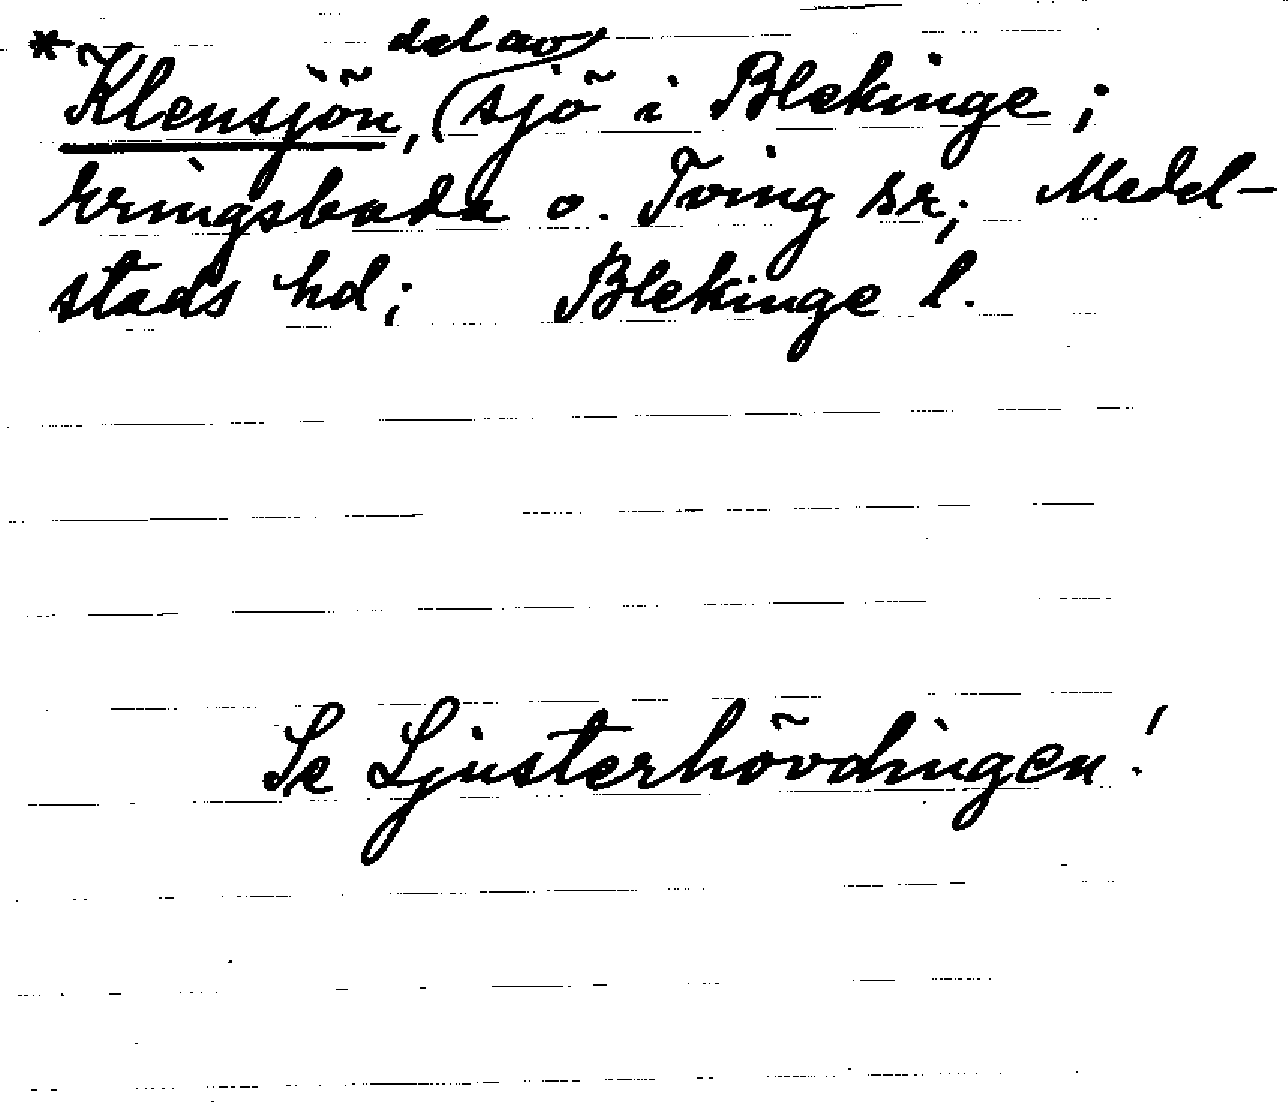 *Klensjön, (del av) sjö i Blekinge;
Eringsboda o. Tving sr; Medel-
stads hd; Blekinge l.
Se Ljusterhövdingen!